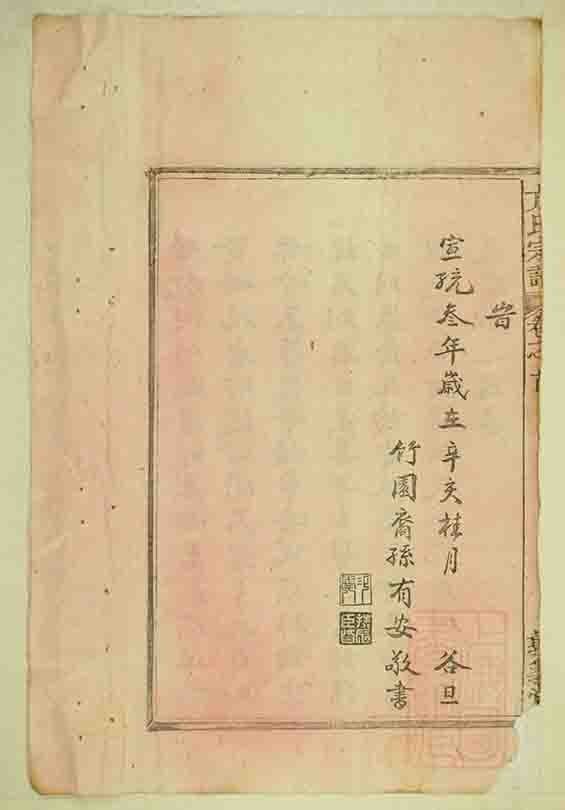 氏宗譜 卷之首
旹
宣統叁年歲在辛亥桂月 谷旦
竹園裔孫有安敬書